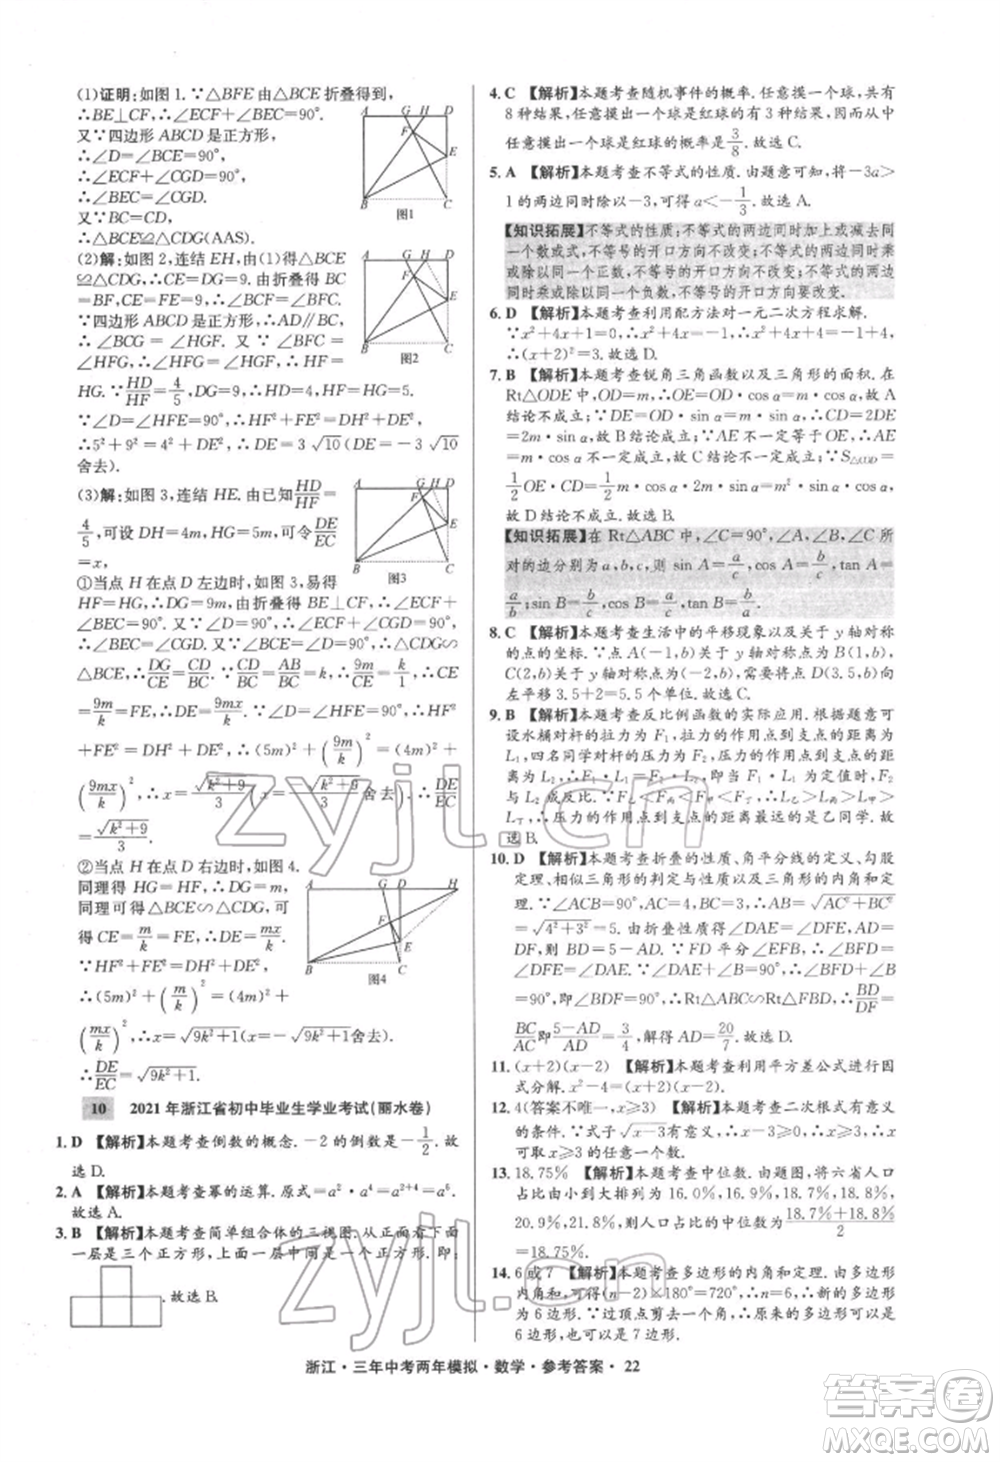 (1)证明:如图 1.∵△BFE 由△BCE 折叠得到,
∴BE⊥CF,∴∠ECF+∠BEC=90°.
又∵四边形 ABCD 是正方形,
∴∠D=∠BCE=90°,
∴∠ECF+∠CGD=90°,
∴∠BEC=∠CGD.
又∵BC=CD,
∴△BCE≌△CDG(AAS).
(2)解:如图 2,连结 EH,由(1)得△BCE
≌△CDG,∴CE=DG=9.由折叠得 BC=
BF,CE=FE=9,∴∠BCF=∠BFC.
又∵四边形 ABCD 是正方形,∴AD∥BC,
∴∠BCG=∠HGF.又∵∠BFC=
∠HFG,∴∠HFG=∠HGF,∴HF=
HG.∵HD/HF=4/5,DG=9,∴HD=4,HF=HG=5.
∵∠D=∠HFE=90°,∴HF²+FE²=DH²+DE²,
∴5²+9²=4²+DE²,∴DE=3√10(DE=-3√10
舍去).
(3)解:如图 3,连结 HE.由已知HD/HF=
4/5,可设 DH=4m,HG=5m,可令DE/EC
=x,
①当点 H 在点 D 左边时,如图 3,易得
HF=HG,∴DG=9m,由折叠得 BE⊥CF,∴∠ECF+
∠BEC=90°.又∵∠D=90°,∴∠ECF+∠CGD=90°,
∴∠BEC=∠CGD.又∵∠BCE=∠D=90°,∴△CDG∽
△BCE,∴DG/CE=CD/BC.∵CD/BC=AB/BC=k,∴9m/CE=k/1,∴CE=
9m/k=FE,∴DE=9mx/k.∵∠D=∠HFE=90°,∴HF²
+FE²=DH²+DE²,∴(5m)²+(9m/k)²=(4m)²+
(9mx/k)²,∴x=√(k²+9)/3或x=-√(k²+9)/3(舍去),∴DE/EC=
√(k²+9)/3.
②当点 H 在点 D 右边时,如图 4.
同理得 HG=HF,∴DG=m,
同理可得△BCE∽△CDG,可
得CE=m/k=FE,∴DE=mx/k.
∵HF²+FE²=DH²+DE²,
∴(5m)²+(m/k)²=(4m)²+
(mx/k)²,∴x=√(9k²+1)或x=-√(9k²+1)(舍去),
∴DE/EC=√(9k²+1).
A G H D
F E
B C
图1
A G H D
F E
B C
图2
A G H D
F E
B C
图3
A G D H
F E
B C
图4
10 2021 年浙江省初中毕业生学业考试(丽水卷)
1. D 【解析】本题考查倒数的概念.-2 的倒数是-1/2.故
选 D.
2. A 【解析】本题考查幂的运算.原式=a²·a⁴=a⁶.
故选 A.
3. B 【解析】本题考查简单组合体的三视图.从正面看下面
一层是三个正方形,上面一层中间是一个正方形.即:
.故选 B.
4. C 【解析】本题考查随机事件的概率.任意摸一个球,共有
8 种结果,任意摸出一个球是红球的有 3 种结果,因而从中
任意摸出一个球是红球的概率是3/8.故选 C.
5. A 【解析】本题考查不等式的性质.由题意可知,-3a>
1 的两边同时除以-3,可得 a<-1/3.故选 A.
【知识拓展】不等式的性质:不等式的两边同时加上或减去同
一个数或式,不等号的开口方向不改变;不等式的两边同时乘
或除以同一个正数,不等号的开口方向不改变;不等式的两边
同时乘或除以同一个负数,不等号的开口方向要改变.
6. D 【解析】本题考查利用配方法对一元二次方程求解.
∵x²+4x+1=0,∴x²+4x=-1,∴x²+4x+4=-1+4,
∴(x+2)²=3.故选 D.
7. B 【解析】本题考查锐角三角函数以及三角形的面积.在
Rt△ODE 中,∵OD=m,∴OE=OD·cos α=m·cos α,故 A
结论不成立.∵DE=OD·sin α=m·sin α,∴CD=2DE
=2m·sin α,故 B 结论成立;∵AE=AO+OE,∴AE
=m+m·cos α不一定成立,故 C 结论不成立;∵S△COD=
1/2OE·CD=1/2m·cos α·2m·sin α=m²sin α·cos α,
故 D 结论不成立.故选 B.
【知识拓展】在 Rt△ABC 中,∠C=90°,∠A、∠B、∠C 所
对的边分别为 a,b,c,则 sin A=a/c,cos A=b/c,tan A=
a/b;sin B=b/c,cos B=a/c,tan B=b/a.
8. C 【解析】本题考查生活中的平移现象以及关于 y 轴对称
的点的坐标.∵点 A(-1,b)关于 y 轴对称点为 B(1,b),
C(2,b)关于 y 轴对称点为(-2,b),需要将点 D(3.5,b)向
左平移 3.5+2=5.5 个单位.故选 C.
9. B 【解析】本题考查反比例函数的实际应用.根据题意可
设水桶对杆的拉力为 F₁,拉力的作用点到支点的距离为
L₁,四名同学对杆的压力为 F₂,压力的作用点到支点的距
离为 L₂,
L₁ 与 L₂ 成反比.
选 B.
10. D 【解析】本题考查折叠的性质、角平分线的定义、勾股
定理、相似三角形的判定与性质、三角形的内角和定理.
∵∠ACB=90°,AC=4,BC=3,∴AB=√(AC²+BC²)
=√(4²+3²)=5.由折叠得∠DAE=∠DFE,AD=DF,
则 BD=5-AD.∵FD 平分∠EFB,∴∠BFD=
∠DFE=∠DAE.∵∠BAC+∠B=90°,∴∠BFD+∠B
=90°,即∠BDF=90°,∴Rt△ABC∽Rt△FBD,∴BD/DF=
BC/AC,即(5-AD)/AD=3/4,解得 AD=20/7.故选 D.
11. (x+2)(x-2) 【解析】本题考查利用平方差公式进行因
式分解.
12. 4(答案不唯一,x≥3) 【解析】本题考查二次根式有意义
的条件.∵式子√(x-3)有意义,∴x-3≥0,∴x≥3,∴x
可取 x≥3 的任意一个数.
13. 18.75% 【解析】本题考查中位数.由图,将六省人口
占比由小到大排列为 16.0%,16.9%,18.7%,18.8%,
20.9%,21.8%,则人口占比的中位数为(18.7%+18.8%)/2
=18.75%.
14. 6 或 7 【解析】本题考查多边形的内角和定理.由题意得
(n-2)×180°=720°,∴n=6,∴新的多边形为
六边形.∵过顶点剪去一个角,∴原来的多边形可以是
6 边形,也可以是 7 边形.
浙江·三年中考两年模拟·数学·参考答案·22
zyjl.cn
zyjl.cn
答案圈
MXQE.COM